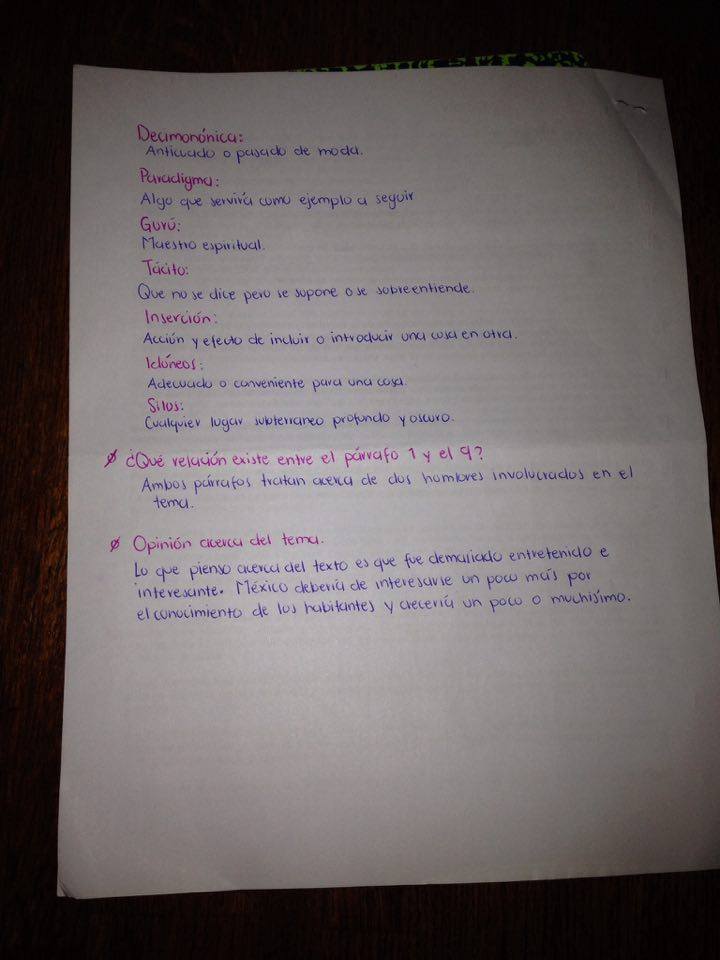 Decimonónica:
Anticuado o pasado de moda.
Paradigma:
Algo que servirá como ejemplo a seguir
Gurú:
Maestro espiritual.
Tácito:
Que no se dice pero se supone o se sobreentiende.
Inserción:
Acción y efecto de incluir o introducir una cosa en otra.
Idóneos:
Adecuado o conveniente para una cosa.
Silos:
Cualquier lugar subterraneo profundo y oscuro.
¿Qué relación existe entre el párrafo 1 y el 9?
Ambos párrafos tratan acerca de dos hombres involucrados en el
tema.
Opinión acerca del tema.
Lo que pienso acerca del texto es que fue demasiado entretenido e
interesante. México debería de interesarse un poco más por
el conocimiento de los habitantes y crecería un poco o muchísimo.